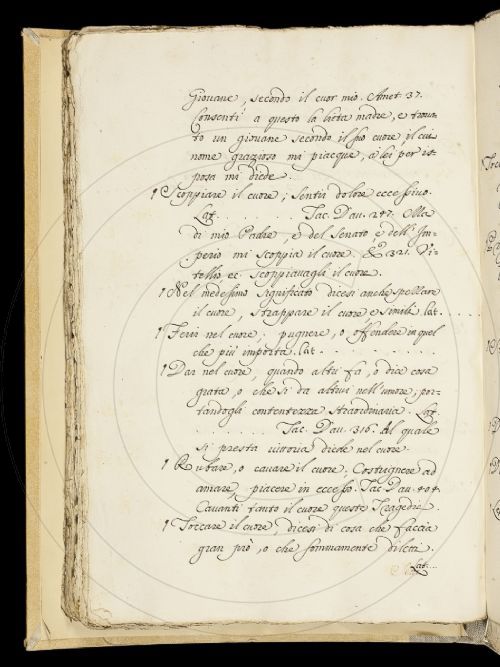 Giovane, secondo il cuor mio. Amet. 37.
Consentì a questo la lieta madre, e trova-
to un giovane secondo il suo cuore, il cui
nome grazioso mi piacque, a lei per is-
posa mi diede.
¶ Scoppiare il cuore; Sentir dolore eccessivo.
Lat. . . . . . . Tac. Dav. 247. Ma
di mio Padre, e del Senato, e dell'Im-
perio mi scoppia il cuore. & 321. Vi-
tellio ec. scoppiavagli il cuore.
¶ Nel medesimo significato dicesi anche spellare
il cuore, strappare il cuore e simili. lat. . . . .
¶ Ferir nel cuore; pugnere, o offendere in quel
che più importa. lat. . . . . . . . . .
¶ Dar nel cuore, quando altri fa, o dice cosa
grata, o che si da altrui nell'umore, por-
tandogli contentezza straordinaria. Lat.
. . . . . . Tac. Dav. 316. Al quale
si presta vittoria diede nel cuore.
¶ Rubare, o cavare il cuore. Costrugnere ad
amare, piacere in eccesso. Tac. Dav. 404.
Cavanti tanto il cuore queste Tragedie.
¶ Toccare il cuore, dicesi di cosa che faccia
gran prò, o che sommamente diletti.
Lat. . .